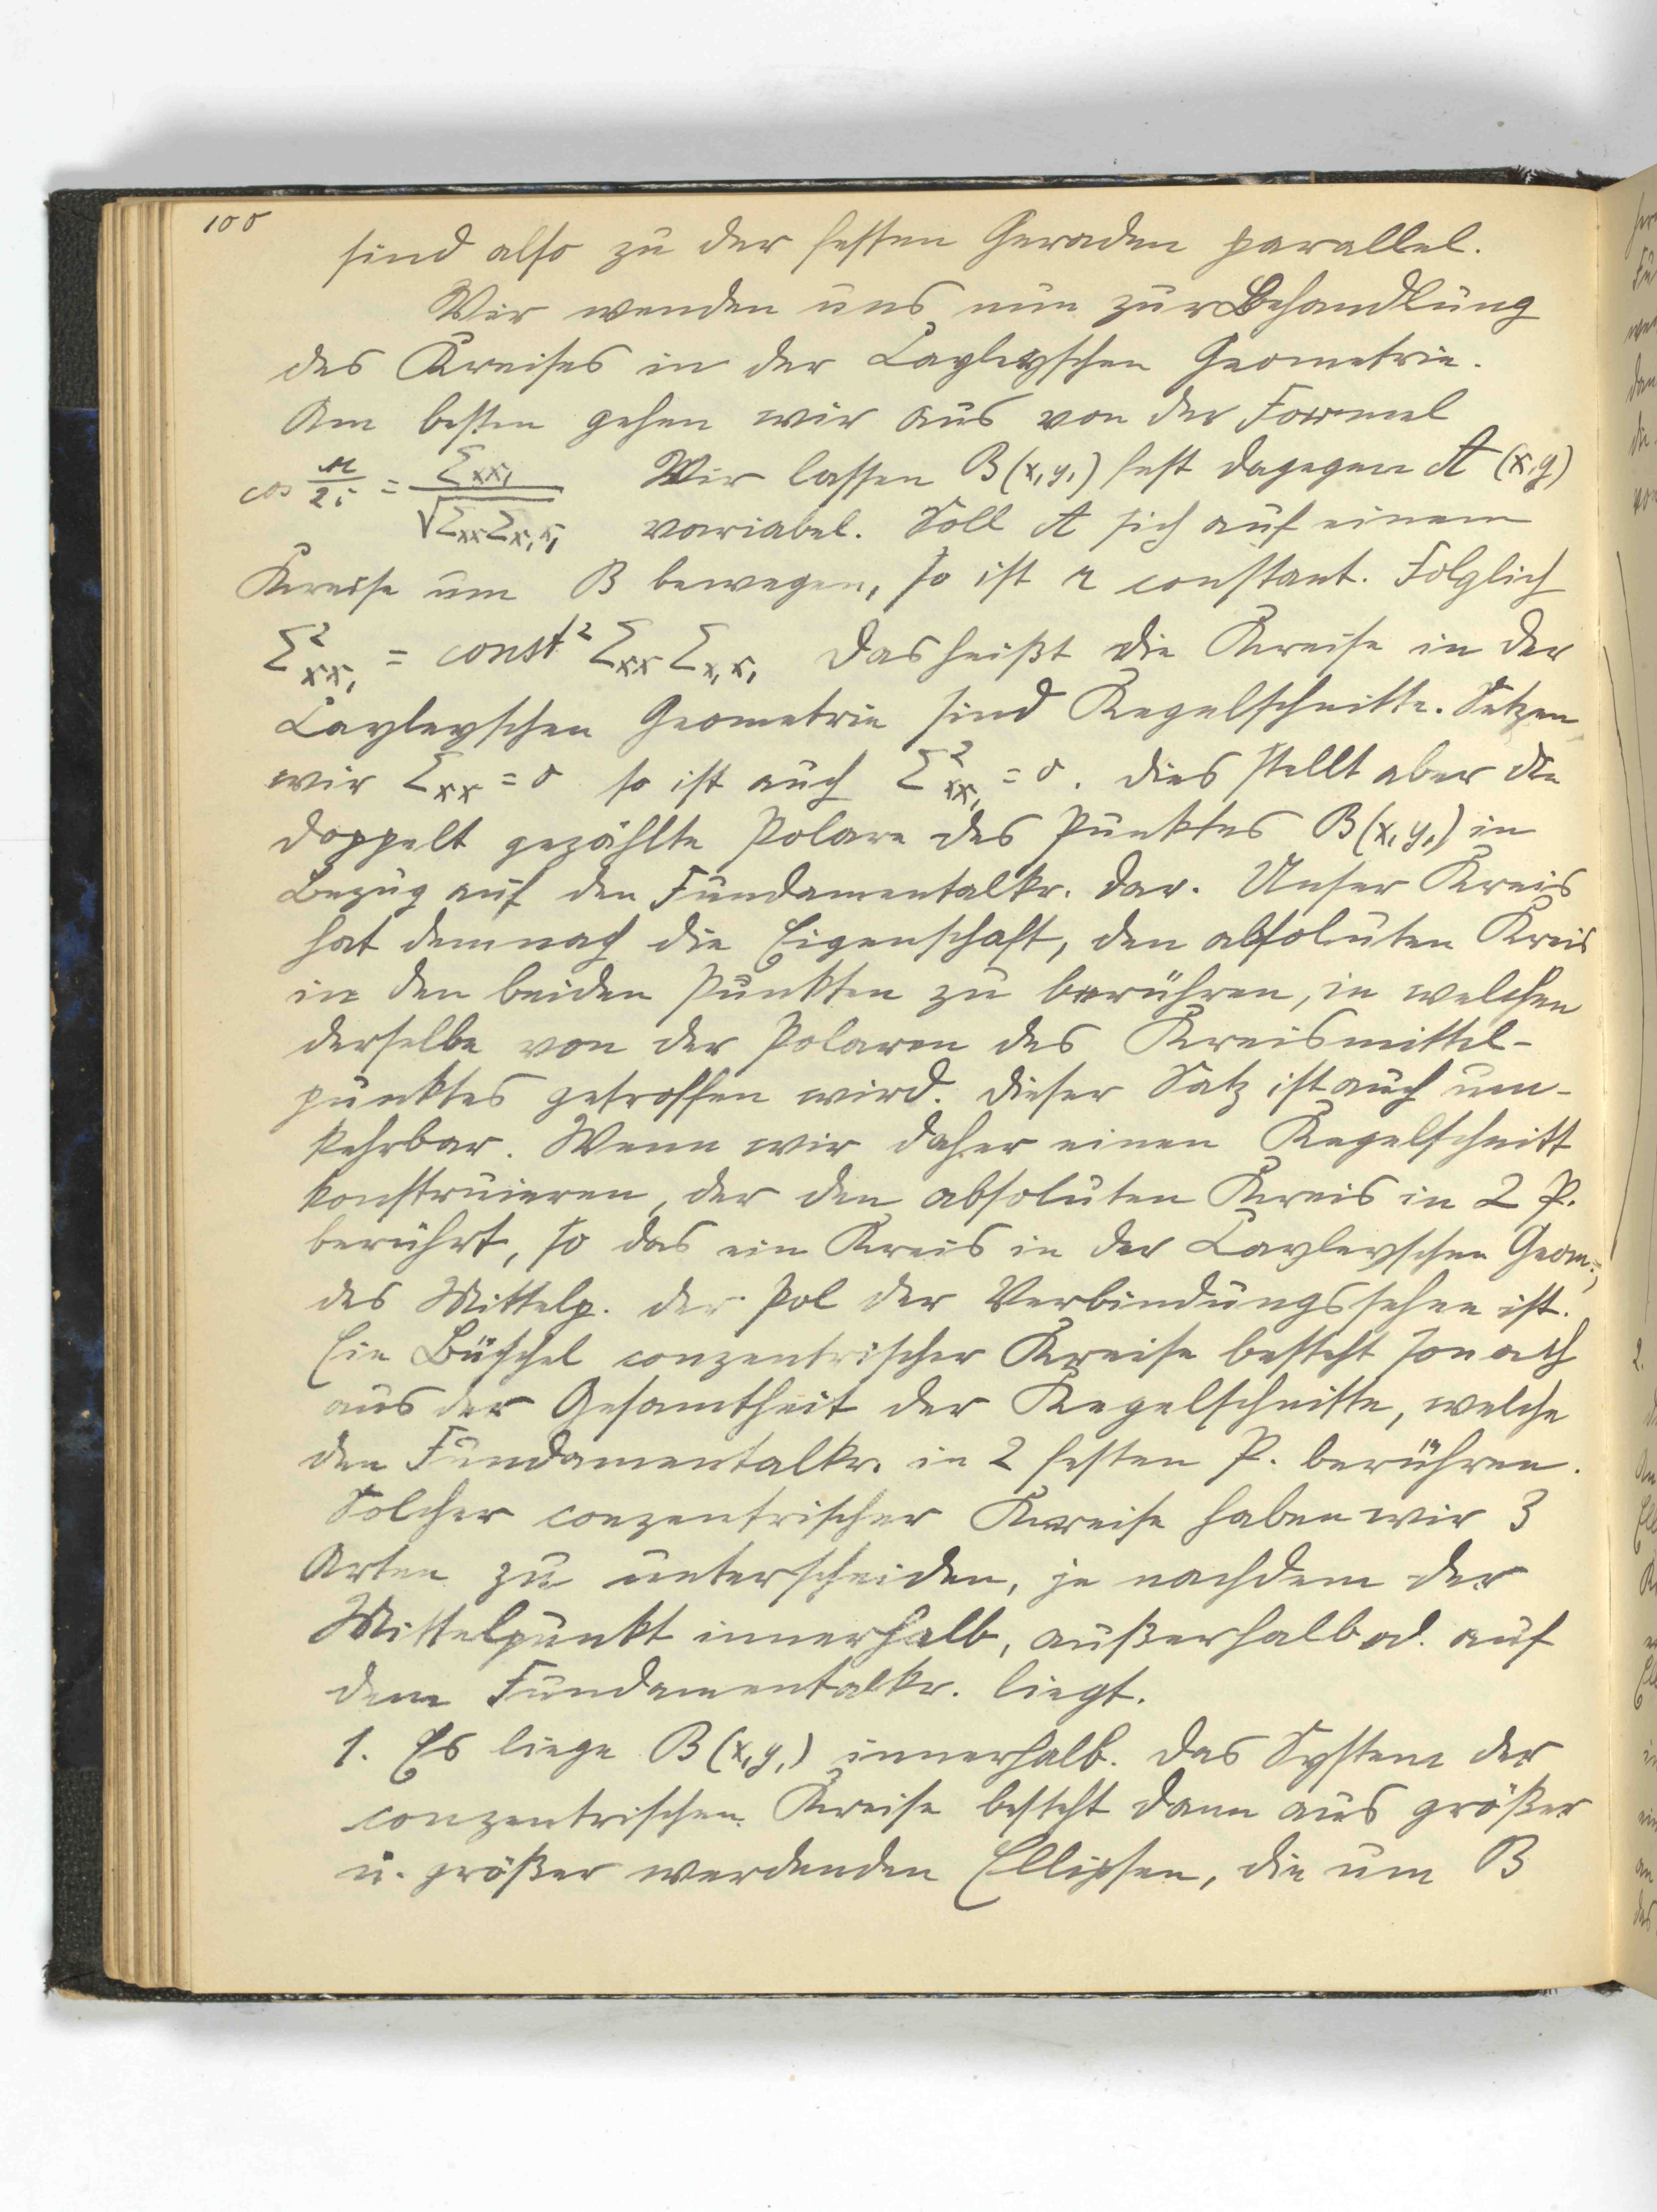 100
sind also zu der festen Geraden parallel.
Wir wenden uns nun zur Behandlung
des Kreises in der Cayleyschen Geometrie.
Am besten gehen wir aus von der Formel
cos r/2i = Σxx₁ / √Σxx Σx₁x₁ Wir lassen B(x₁y₁) fest dagegen A (x,y)
variabel. Soll A sich auf einem
Kreise um B bewegen, so ist r constant. Folglich
Σ²xx₁ = const² Σxx Σx₁x₁ das heißt die Kreise in der
Cayleyschen Geometrie sind Kegelschnitte. Setzen
wir Σxx = 0 so ist auch Σ²xx₁ = 0. Dies stellt aber die
doppelt gezählte Polare des Punktes B(x₁y₁) in
Bezug auf den Fundamentalkr. dar. Unser Kreis
hat demnach die Eigenschaft, den absoluten Kreis
in den beiden Punkten zu berühren, in welchen
derselbe von der Polaren des Kreismittel-
punktes getroffen wird. Dieser Satz ist auch um-
kehrbar. Wenn wir daher einen Kegelschnitt
konstruieren, der den absoluten Kreis in 2 P.
berührt, so das ein Kreis in der Cayleyschen Geom.,
des Mittelp. der Pol der Verbindungssehne ist.
Ein Büschel conzentrischer Kreise besteht sonach
aus der Gesamtheit der Kegelschnitte, welche
den Fundamentalkr. in 2 festen P. berühren.
Solcher conzentrischer Kreise haben wir 3
Arten zu unterscheiden, je nachdem der
Mittelpunkt innerhalb, außerhalb od. auf
dem Fundamentalkr. liegt.
1. Es liege B(x₁y₁) innerhalb. Das System der
conzentrischen Kreise besteht dann aus größer
u. größer werdenden Ellipsen, die um B